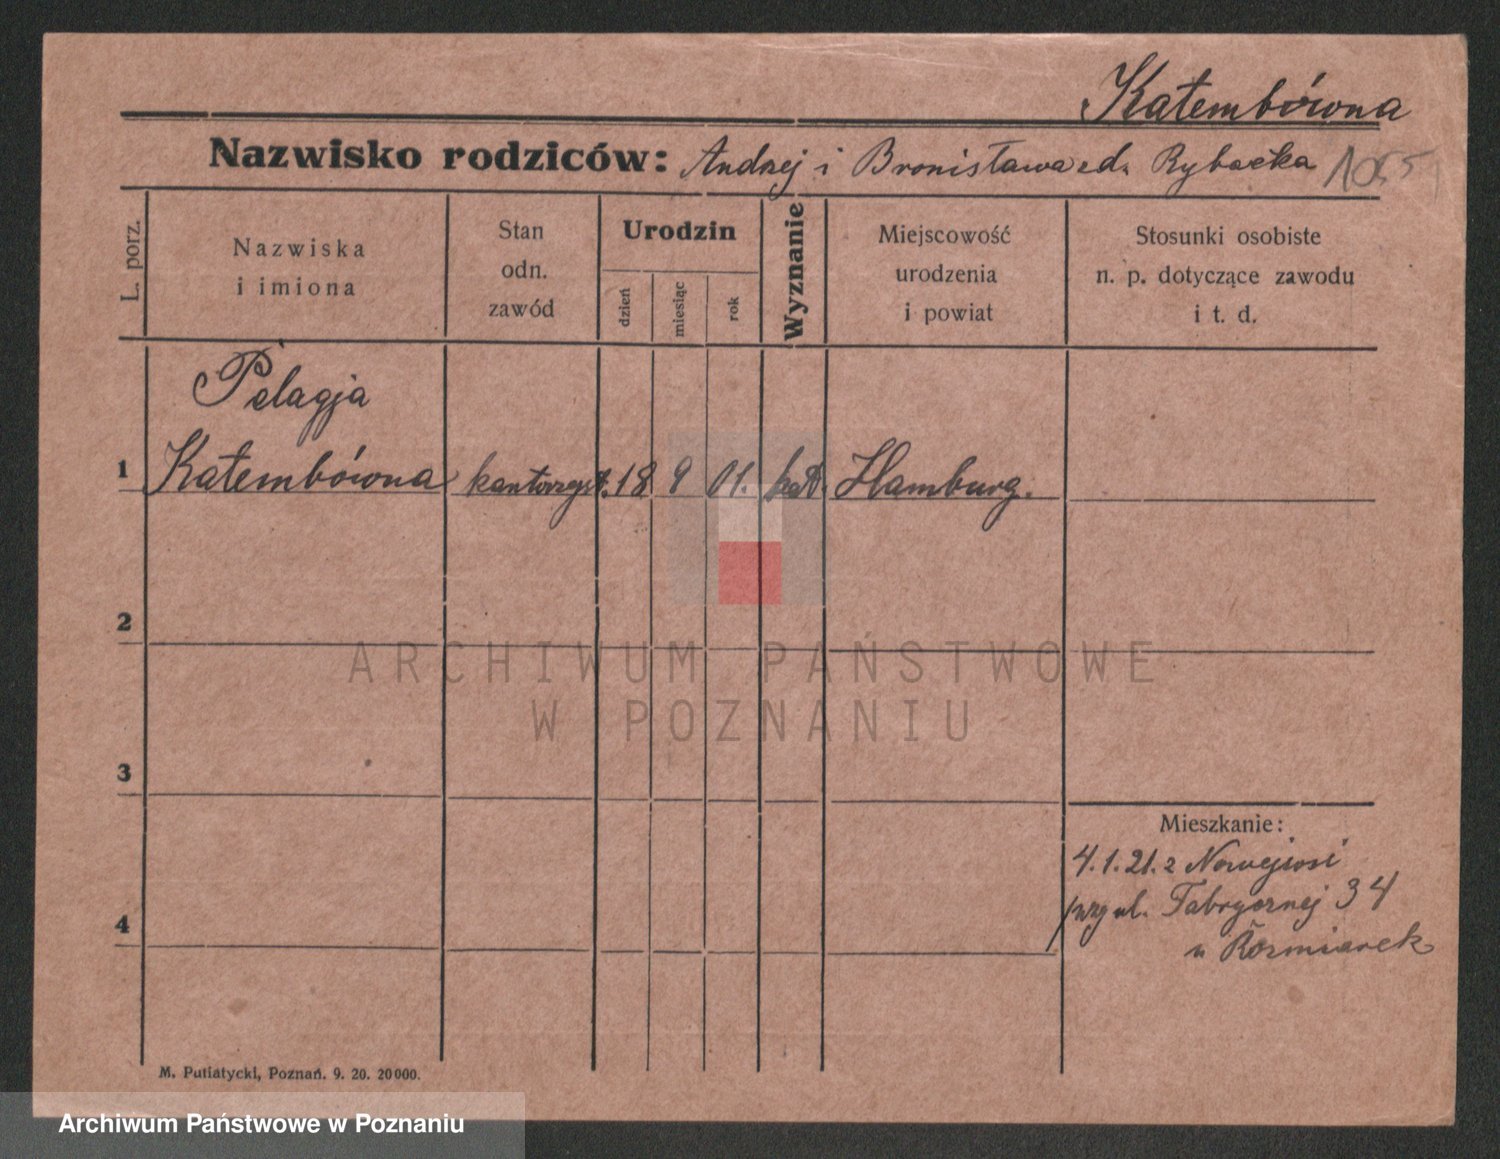 Katembówna
Nazwisko rodziców: Andrzej i Bronisława zd. Rybacka
L. porz.
Nazwiska
i imiona
Stan
odn.
zawód
Urodzin
dzień
miesiąc
rok
Wyznanie
Miejscowość
urodzenia
i powiat
Stosunki osobiste
n. p. dotyczące zawodu
i t. d.
Pelagja
1 Katembówna kantorzyst. 18 9 01. kat. Hamburg.
2
3
4
Mieszkanie:
4.1.21. z Nowejwsi
przy ul. Fabrycznej 34
u Rozmiarek
M. Putiatycki, Poznań. 9. 20. 20000.
ARCHIWUM PAŃSTWOWE
W POZNANIU
Archiwum Państwowe w Poznaniu